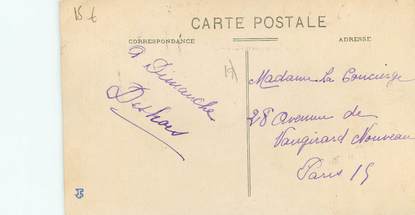 15 €
CARTE POSTALE
CORRESPONDANCE
ADRESSE
a Dimanche
Madame La Concierge
28 Avenue de
Vaugirard Nouveau
Paris 15